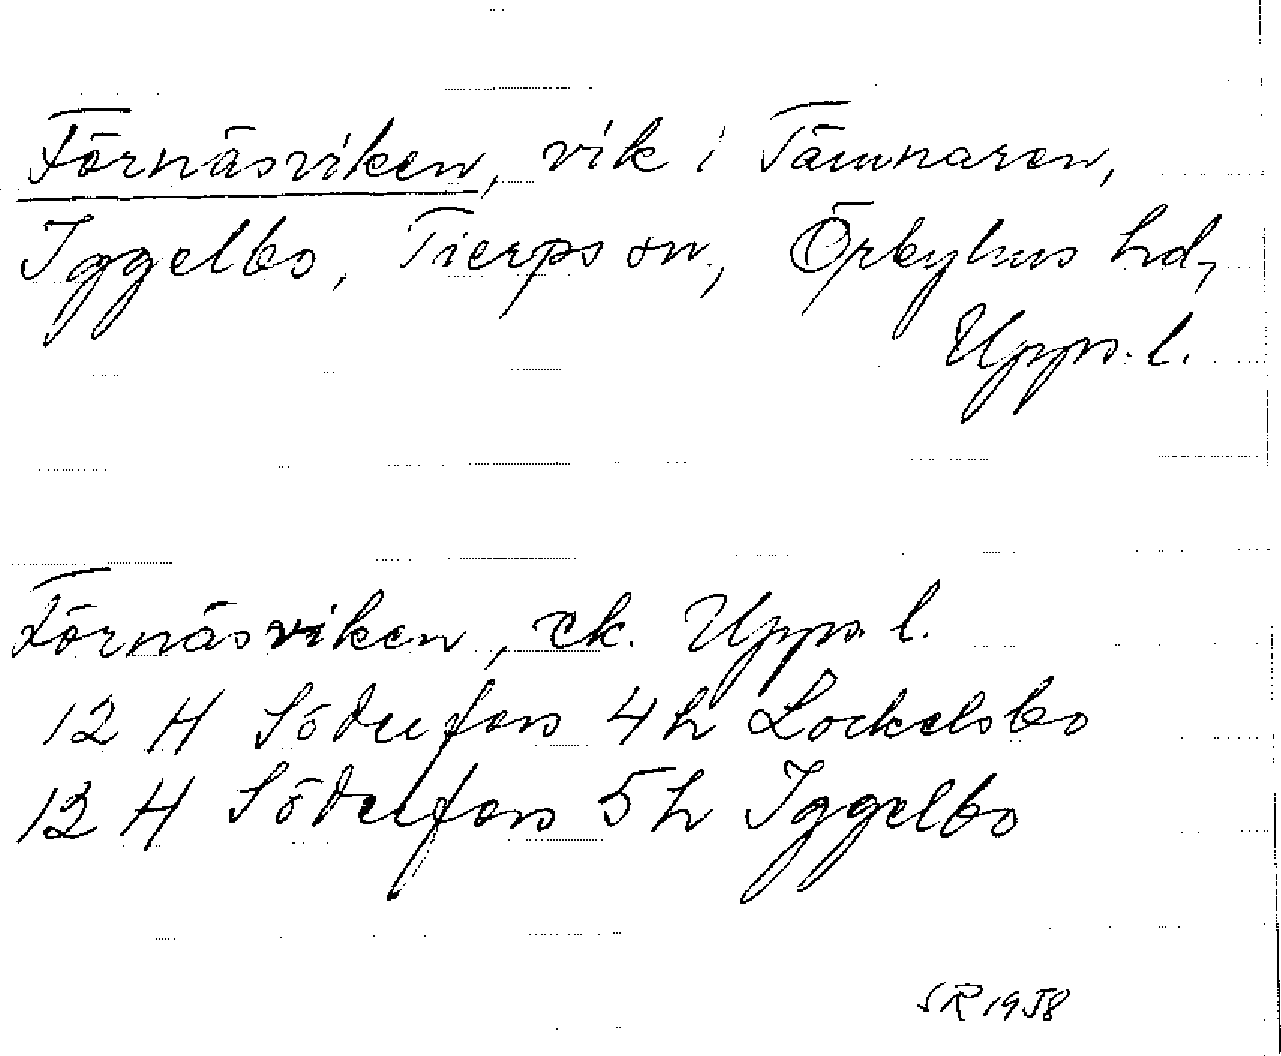 Förnäsviken, vik i Tämnaren,
Iggelbo, Tierps sn, Örbyhus hd,
Upps. l.
Förnäsviken, ek. Upps. l.
12 H Söderfors 4h Lockelsbo
12 H Söderfors 5h Iggelbo
SR 1958